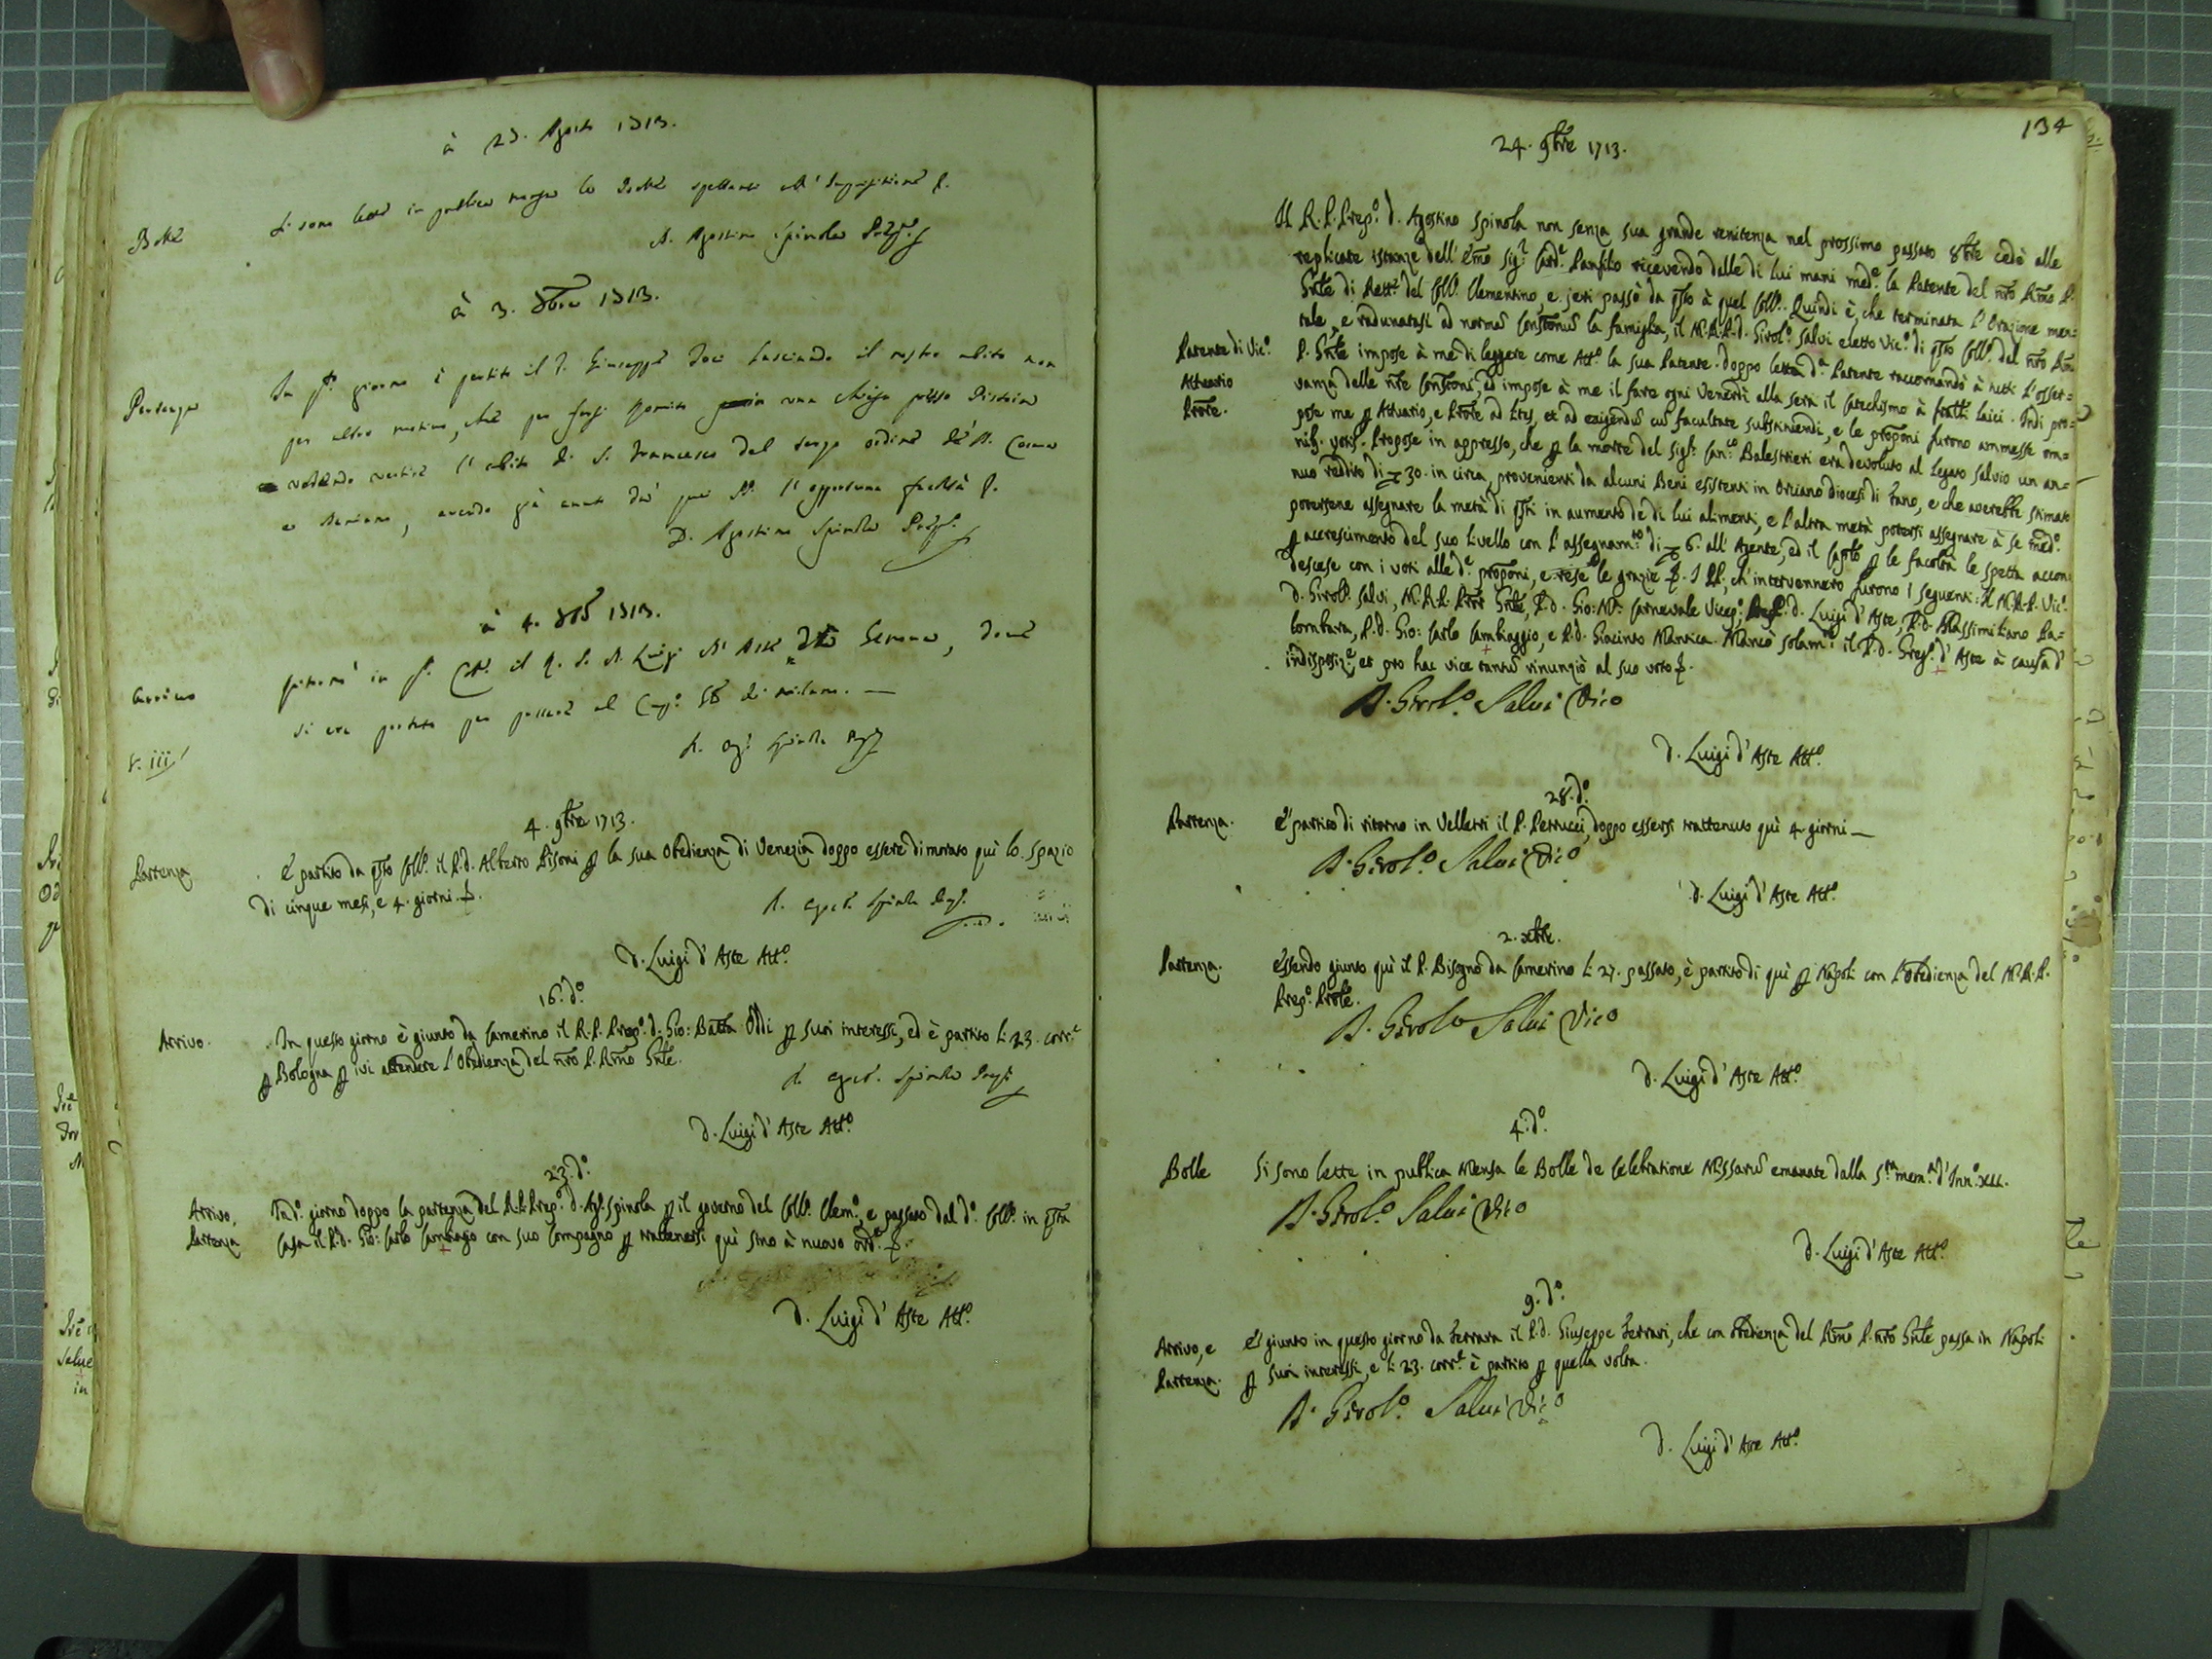 à 23. Agosto 1713.
Bolle
Si sono lette in publica mensa le Bolle spettanti all' Inquisitione
D. Agostino Spinola
à 3. 8bre 1713.
Partenza
In giorno è partito il Giuseppe lasciando il nostro abito non
per altro motivo, che per farsi una chiesa presso
vestire l'abito di S. Francesco del terzo ordine
avendo già avuta l'opportuna facoltà
D. Agostino Spinola
à 4. 8bre 1713.
Arrivo
in il Luigi d' Aste da Genova, dove
si era portato per passare al di Milano.
Spinola
4. 9bre 1713.
Partenza
È partito da qsto Coll.º il P.d. Alberto Pisoni p la sua obedienza di Venezia doppo essere dimorato quì lo spazio
di cinque mesi, e 4. giorni.
Spinola
D. Luigi d' Aste Att.º
16. d.º
Arrivo.
In questo giorno è giunto da Camerino il R.P. Prep.º d. Gio: Batta Oddi p suoi interessi, ed è partito li 23. corr.e
p Bologna p ivi attendere l'Obedienza del nro P. Rmo Gnle.
Spinola
D. Luigi d' Aste Att.º
23. d.º
Arrivo,
Partenza
In d.º giorno doppo la partenza del R.P. Prep.º d. Ag.º Spinola p il governo del Coll.º Clem.º, e passato dal d.º Coll.º in qsta
Casa il P.d. Gio: Carlo Cambiago con suo Compagno p trattenersi quì sino à nuovo ord.e
D. Luigi d' Aste Att.º
134
24. 9bre 1713.
Il R.P. Prep.º d. Agostino Spinola non senza sua grande renitenza nel prossimo passato 8bre cedè alle
replicate istanze dell' Emo Sig.r Card.e Panfilio ricevendo dalle di lui mani med.e la Patente del nro Rmo P.
Gnle di Rett.e del Coll.º Clementino, e jeri passò da qsto à quel Coll.º. Quindi è, che terminata l'Orazione men=
tale, e radunatasi ad normã Constonuũ la famiglia, il M.R.P.d. Girol.º Salvi eletto Vic.º di qsto Coll.º del nro Rmo
Patente di Vic.º
Attuario
Prore.
P. Gnle impose à me di leggere come Att.º la sua Patente. Doppo letta d.a Patente raccomandò à tutti l'osser=
vanza delle nre Constoni, ed impose à me il fare ogni Venerdì alla sera il Catechismo à fratti laici. Indi pro=
pose me p Attuario, e Prore ad lites, et ad exigendũ cũ facultate substituendi, e le proponi furono ammesse om=
nib. votis. Propose in appresso, che p la morte del Sig.r Can.co Balestrieri era devoluto al Legato Salvio un an=
nuo reddito di 30. in circa, provenienti da alcuni Beni esistenti in Orciano diocesi di Fano, e che averebbe stimato
potersene assegnare la metà di qsti in aumento de di lui alimenti, e l'altra metà potersi assegnare à se med.º
p accrescimento del suo livello con l'assegnam.to di 6. all' Agente, ed il Caplo p le facoltà le spetta accon
descese con i voti alle d.e proponi, e rese le grazie. I PP. ch' intervennero furono i seguenti: Il M.R.P. Vic.º
D. Girol.º Salvi, M.R.P. Gnle, P.d. Gio: Carnevale Vicep.º, d. Luigi d' Aste, P.d. Massimiliano Pa=
lombara, P.d. Gio: Carlo Cambiaggio, e P.d. Giacinto Mantica. Mancò solam.e il P.d. Greg.º d' Aste à causa d'
indisposiz.e, et pro hac vice tantũ rinunziò al suo voto.
D. Girol.º Salvi Vic.º
D. Luigi d' Aste Att.º
28. d.º
Partenza.
È partito di ritorno in Velletri il P. Petrucci, doppo essersi trattenuto quì 4 giorni
D. Girol.º Salvi Vic.º
D. Luigi d' Aste Att.º
2. xbre.
Partenza.
Essendo giunto quì il P. Bisogno da Camerino li 27. passato, è partito di quì p Napoli con l'obedienza del M.R.P.
Prep.º Prole.
D. Girol.º Salvi Vic.º
D. Luigi d' Aste Att.º
4. d.º
Bolle
Si sono lette in publica Mensa le Bolle de Celebratione Missarũ emanate dalla S.ta mem.a d' Inn.º XII.
D. Girol.º Salvi Vic.º
D. Luigi d' Aste Att.º
9. d.º
Arrivo, e
Partenza.
È giunto in questo giorno da Ferrara il P.d. Giuseppe Ferrari, che con obedienza del Rmo P. nro Gnle passa in Napoli
p suoi interessi, e li 23. corr.e è partito p quella volta.
D. Girol.º Salvi Vic.º
D. Luigi d' Aste Att.º